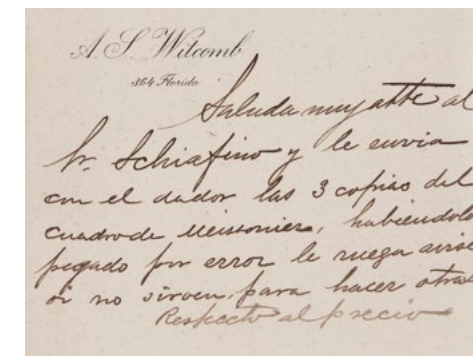 A. S. Witcomb
364 Florida
Saluda muy atte al
Sr. Schiafino y le envia
con el dador las 3 copias del
cuadro de Meissonier, habiendolo
pegado por error le ruega avise
si no sirven para hacer otras
Respecto al precio